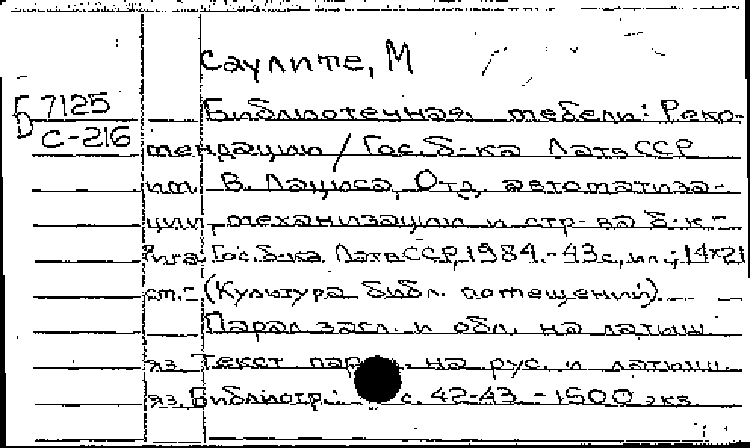 Саулите, М
Б 7125
С-216
Библиотечная мебель: Реко-
мендации / Гос. б-ка ЛатвССР
им. В. Лациса, Отд. автоматиза-
ции, механизации и стр-ва б-к.-
Рига: Гос. б-ка ЛатвССР, 1984.-43с., ил.; 14х21
см.- (Культура библ. помещений).
Парал. загл. и обл. на латыш.
яз. Текст парал. на рус. и латыш.
яз. Библиогр.: с. 42-43 - 1500 экз.